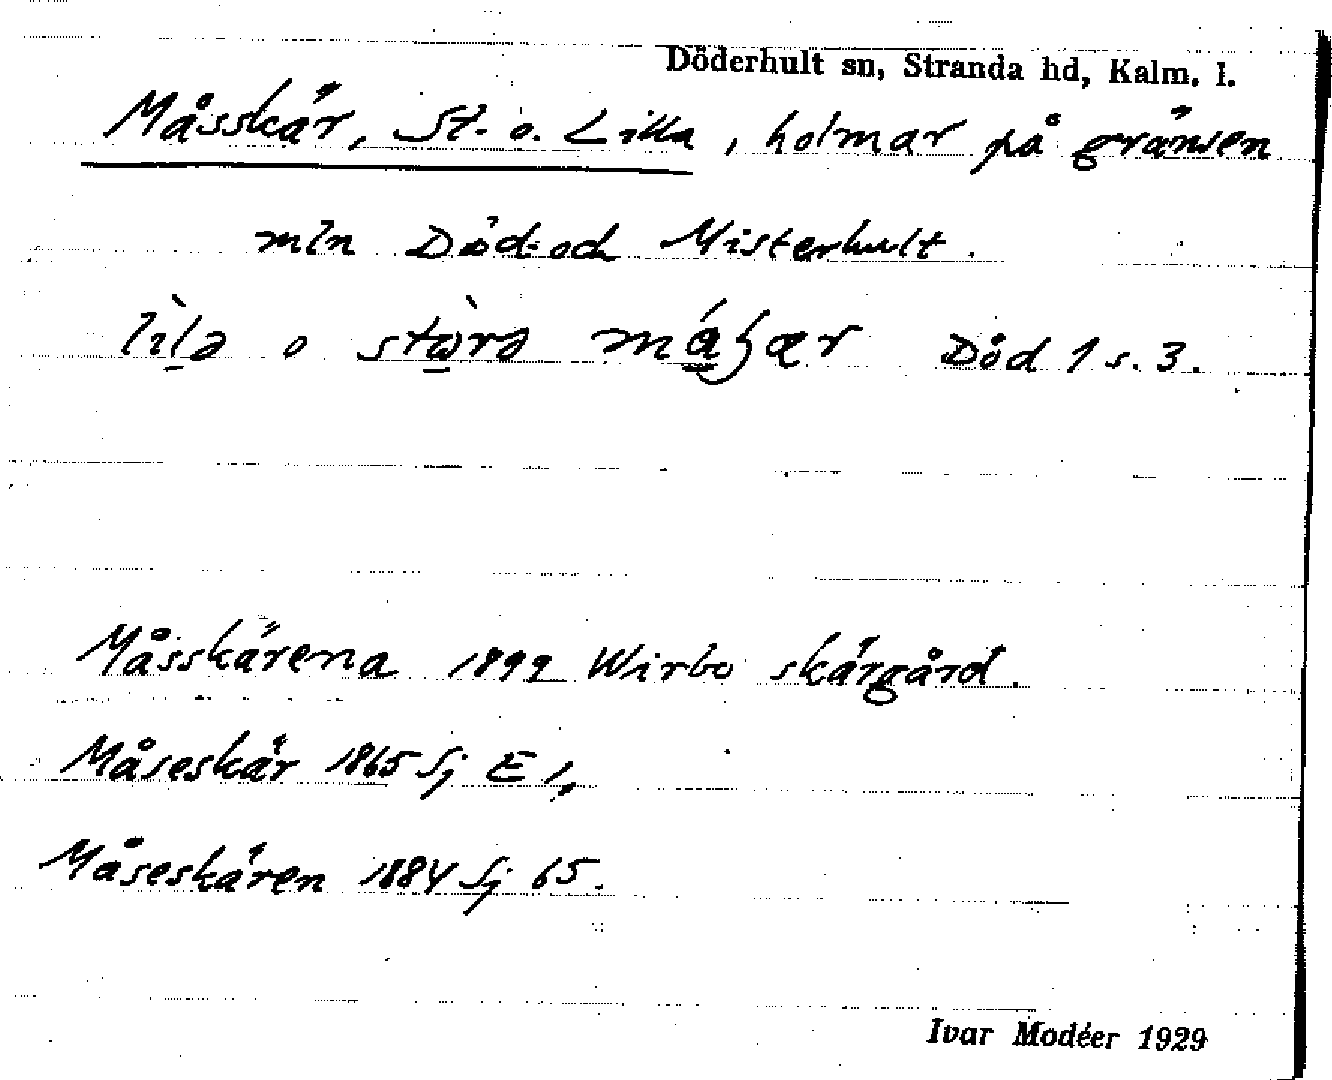 Döderhult sn, Stranda hd, Kalm. l.
Måsskär, St. o. Lilla, holmar på gränsen
mln Död- och Misterhult.
lìlə o stωrə Död 1 s. 3.
Måsskärena 1892 Wirbo skärgård.
Måseskär 1865 Sj E
Måseskären 1884 Sj 65.
Ivar Modéer 1929